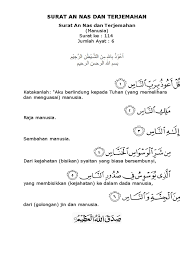 SURAT AN NAS DAN TERJEMAHAN
Surat An Nas dan Terjemahan
(Manusia)
Surat ke : 114
Jumlah Ayat : 6
أَعُوْذُ بِاللهِ مِنَ الشَّيْطَانِ الرَّجِيْمِ
بسم الله الرحمن الرحيم
قُلْ أَعُوذُ بِرَبِّ ٱلنَّاسِ ١
Katakanlah: "Aku berlindung kepada Tuhan (yang memelihara
dan menguasai) manusia.
مَلِكِ ٱلنَّاسِ ٢
Raja manusia.
إِلَٰهِ ٱلنَّاسِ ٣
Sembahan manusia.
مِن شَرِّ ٱلْوَسْوَاسِ ٱلْخَنَّاسِ ٤
Dari kejahatan (bisikan) syaitan yang biasa bersembunyi,
ٱلَّذِي يُوَسْوِسُ فِي صُدُورِ ٱلنَّاسِ ٥
yang membisikkan (kejahatan) ke dalam dada manusia,
مِنَ ٱلْجِنَّةِ وَٱلنَّاسِ ٦
dari (golongan) jin dan manusia.
صَدَقَ اللهُ الْعَظِيْمُ